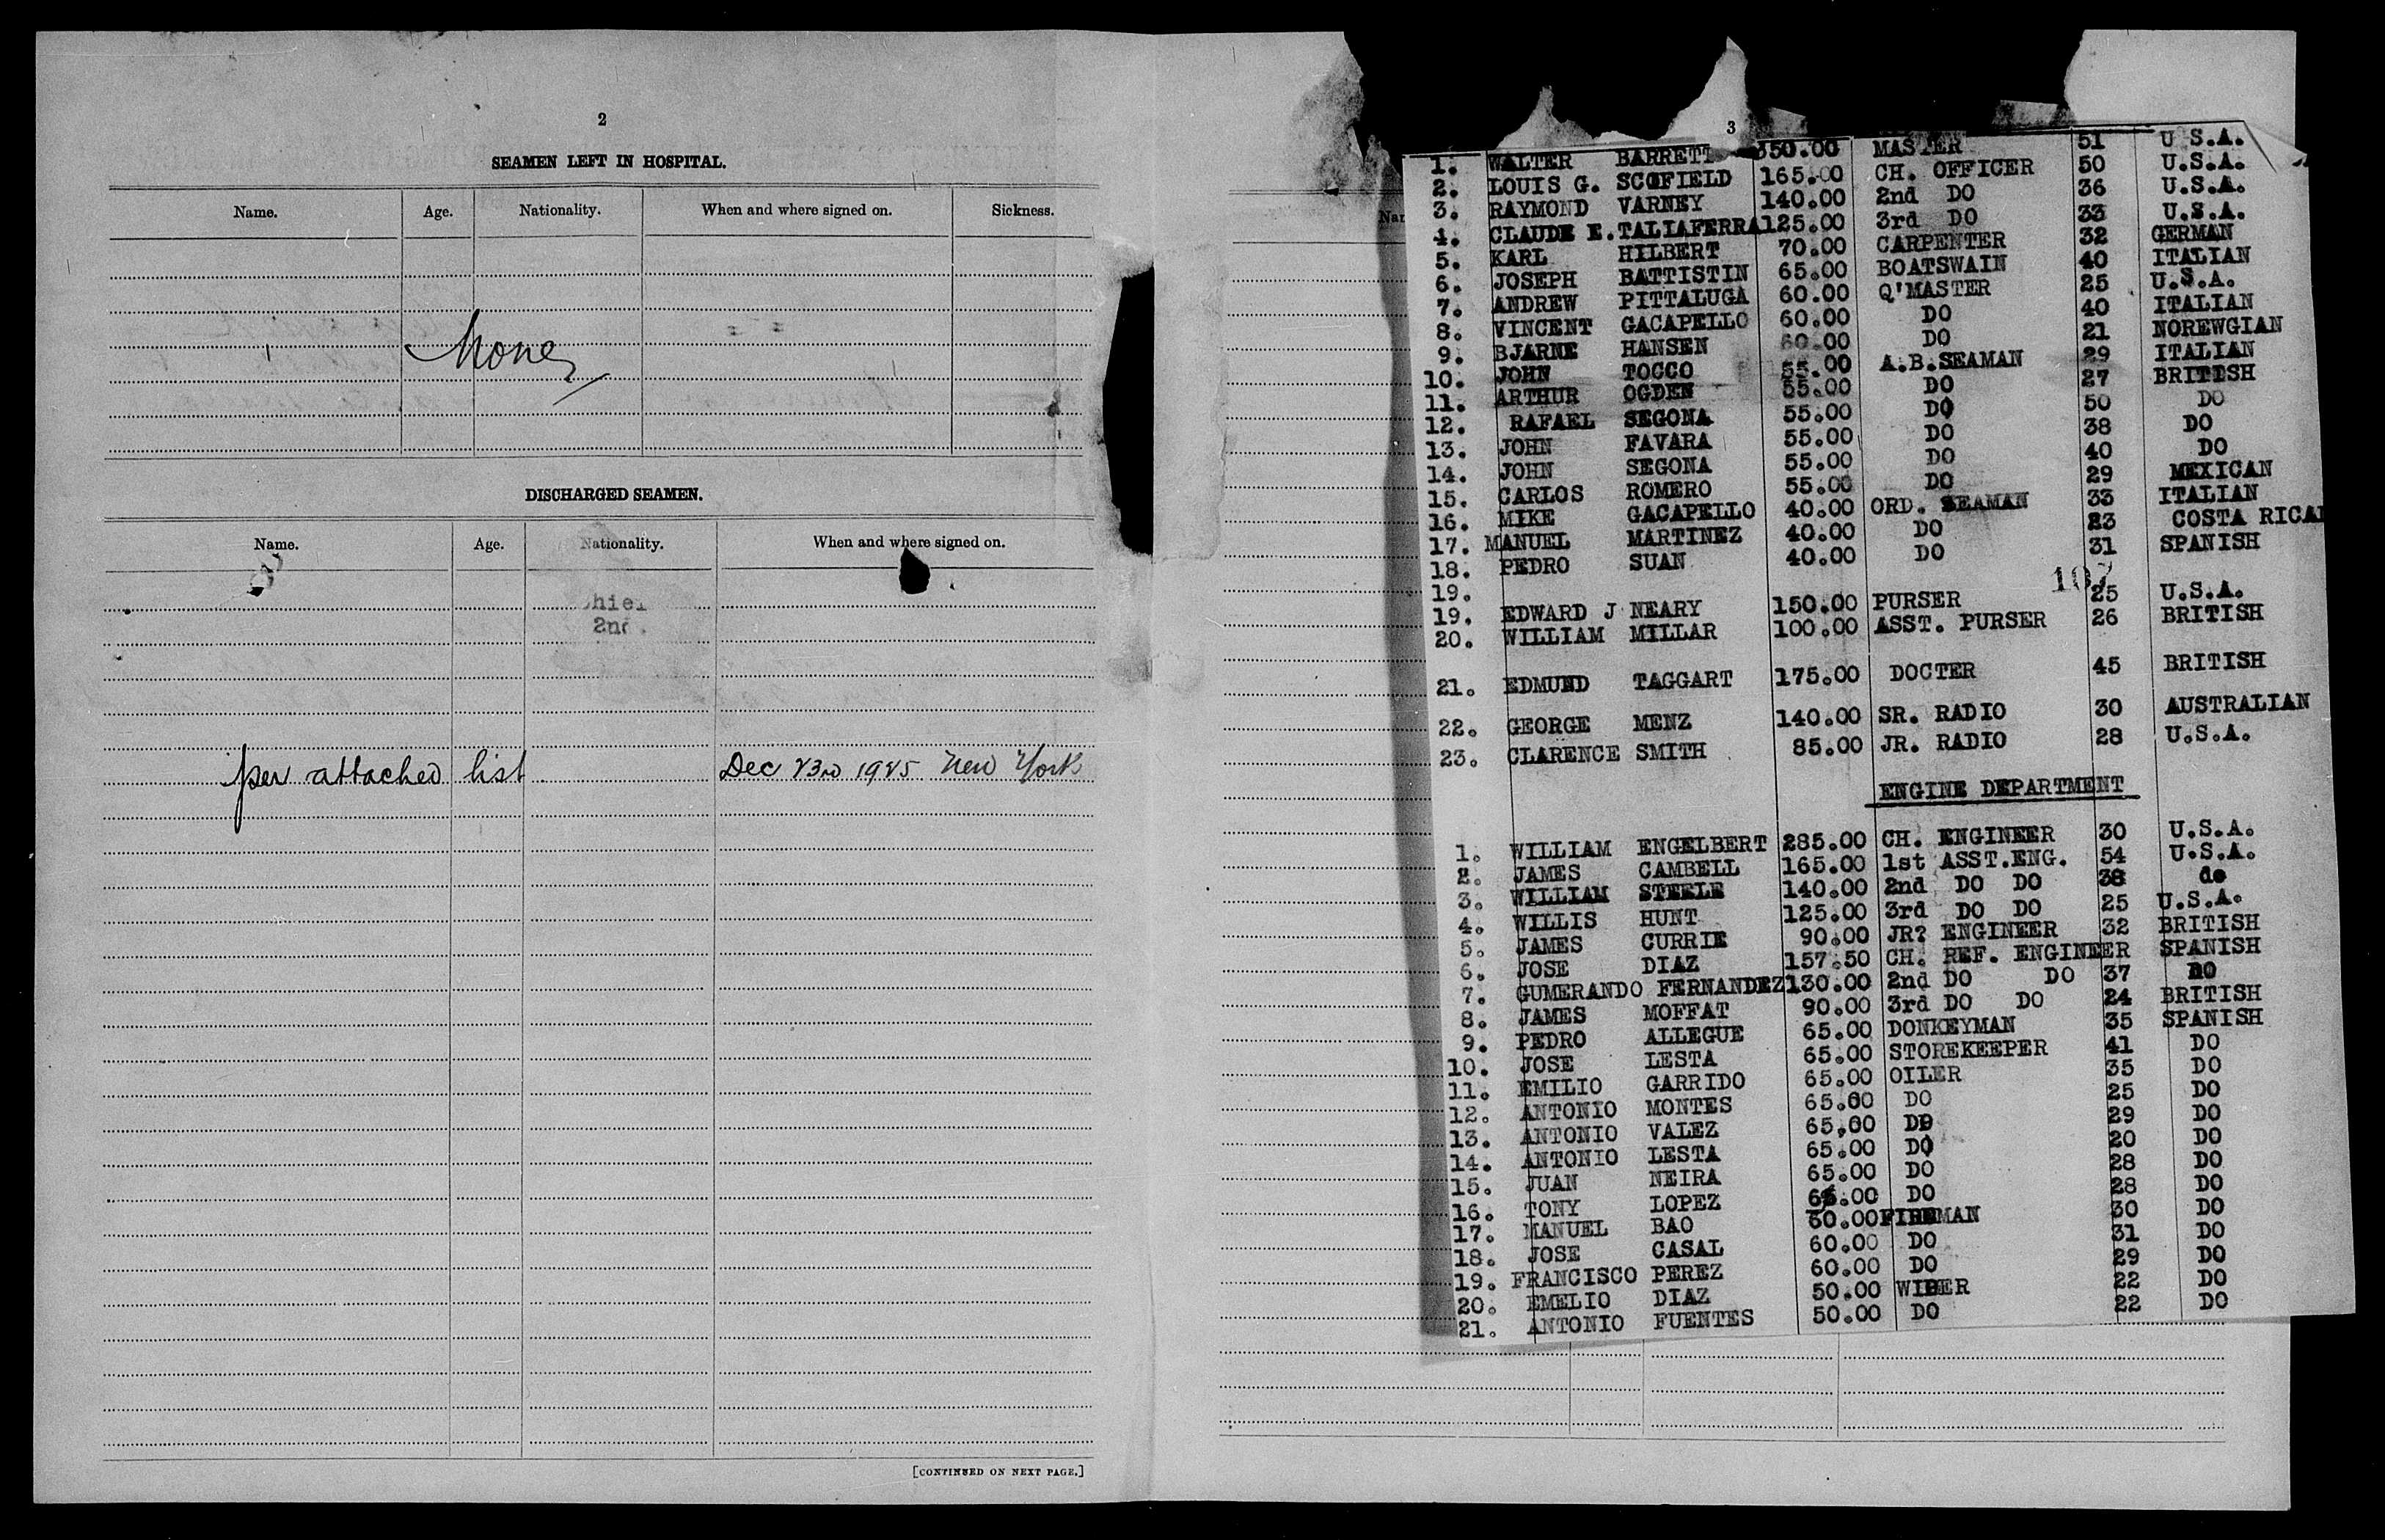 2
SEAMEN LEFT IN HOSPITAL.
Name. Age. Nationality. When and where signed on. Sickness.
None
DISCHARGED SEAMEN.
Name. Age. Nationality. When and where signed on.
2nd.
per attached list Dec 23rd 1925 New York
[CONTINUED ON NEXT PAGE.]
3
1. WALTER BARRETT 350.00 MASTER 51 U.S.A.
2. LOUIS G. SCOFIELD 165.00 CH. OFFICER 50 U.S.A.
3. RAYMOND VARNEY 140.00 2nd DO 36 U.S.A.
4. CLAUDE E.TALIAFERRA 125.00 3rd DO 33 U.S.A.
5. KARL HILBERT 70.00 CARPENTER 32 GERMAN
6. JOSEPH BATTISTIN 65.00 BOATSWAIN 40 ITALIAN
7. ANDREW PITTALUGA 60.00 Q'MASTER 25 U.S.A.
8. VINCENT GACAPELLO 60.00 DO 40 ITALIAN
9. BJARNE HANSEN 60.00 DO 21 NOREWGIAN
10. JOHN TOCCO 55.00 A.B.SEAMAN 29 ITALIAN
11. ARTHUR OGDEN 55.00 DO 27 BRITISH
12. RAFAEL SEGONA 55.00 DO 50 DO
13. JOHN FAVARA 55.00 DO 38 DO
14. JOHN SEGONA 55.00 DO 40 DO
15. CARLOS ROMERO 55.00 DO 29 MEXICAN
16. MIKE GACAPELLO 40.00 ORD. SEAMAN 33 ITALIAN
17. MANUEL MARTINEZ 40.00 DO 23 COSTA RICAN
18. PEDRO SUAN 40.00 DO 31 SPANISH
19.
107
19. EDWARD J NEARY 150.00 PURSER 25 U.S.A.
20. WILLIAM MILLAR 100.00 ASST. PURSER 26 BRITISH
21. EDMUND TAGGART 175.00 DOCTER 45 BRITISH
22. GEORGE MENZ 140.00 SR. RADIO 30 AUSTRALIAN
23. CLARENCE SMITH 85.00 JR. RADIO 28 U.S.A.
ENGINE DEPARTMENT
1. WILLIAM ENGELBERT 285.00 CH. ENGINEER 30 U.S.A.
2. JAMES CAMBELL 165.00 1st ASST.ENG. 54 U.S.A.
3. WILLIAM STEELE 140.00 2nd DO DO 38 do
4. WILLIS HUNT 125.00 3rd DO DO 25 U.S.A.
5. JAMES CURRIE 90.00 JR? ENGINEER 32 BRITISH
6. JOSE DIAZ 157.50 CH. REF. ENGINEER SPANISH
7. GUMERANDO FERNANDEZ 130.00 2nd DO DO 37 DO
8. JAMES MOFFAT 90.00 3rd DO DO 24 BRITISH
9. PEDRO ALLEGUE 65.00 DONKEYMAN 35 SPANISH
10. JOSE LESTA 65.00 STOREKEEPER 41 DO
11. EMILIO GARRIDO 65.00 OILER 35 DO
12. ANTONIO MONTES 65.00 DO 25 DO
13. ANTONIO VALEZ 65.00 DO 29 DO
14. ANTONIO LESTA 65.00 DO 20 DO
15. JUAN NEIRA 65.00 DO 28 DO
16. TONY LOPEZ 65.00 DO 28 DO
17. MANUEL BAO 60.00 FIREMAN 30 DO
18. JOSE CASAL 60.00 DO 31 DO
19. FRANCISCO PEREZ 60.00 DO 29 DO
20. EMELIO DIAZ 50.00 WIPER 22 DO
21. ANTONIO FUENTES 50.00 DO 22 DO